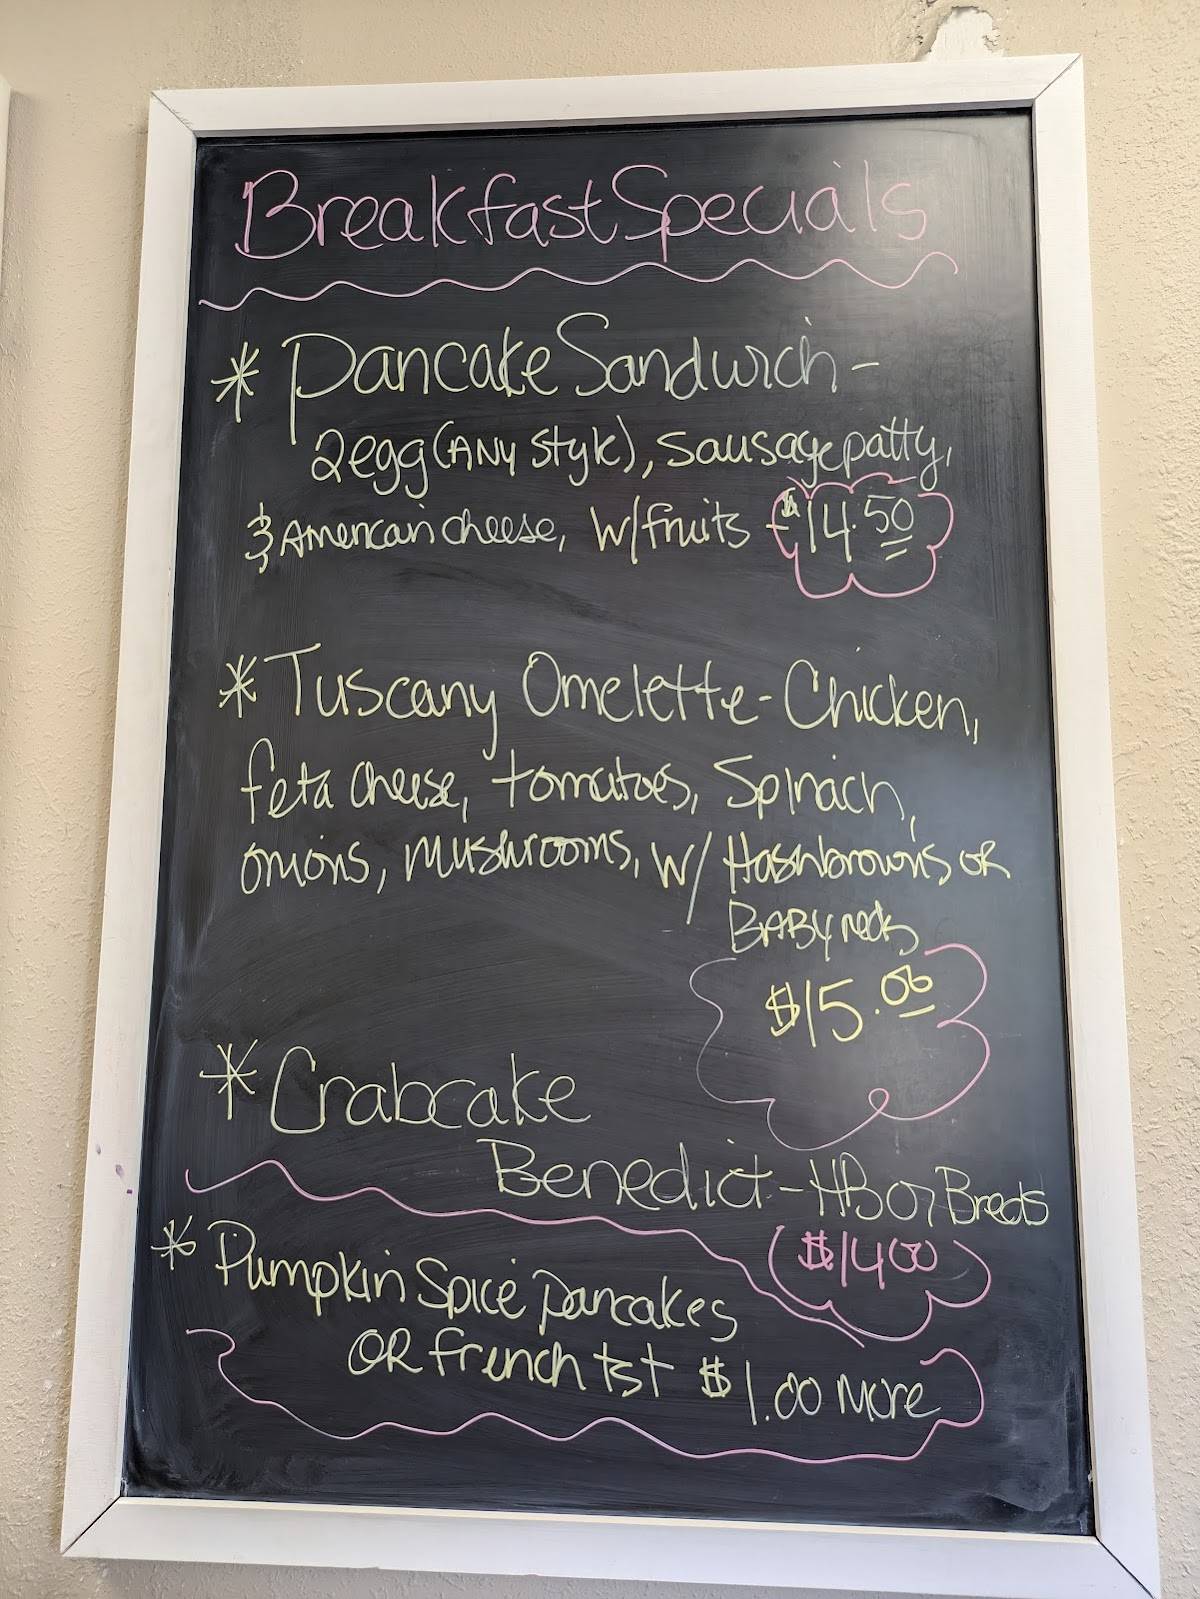 Breakfast Specials
* Pancake Sandwich -
2 egg (ANY Style), sausage patty,
& American cheese, w/ fruits - $14.50
* Tuscany Omelette - Chicken,
feta cheese, tomatoes, Spinach,
onions, mushrooms, w/ Hashbrowns OR
BABY reds
$15.00
* Crabcake
Benedict - HB or Breds
$14.00
* Pumpkin Spice pancakes
OR french tst $1.00 more